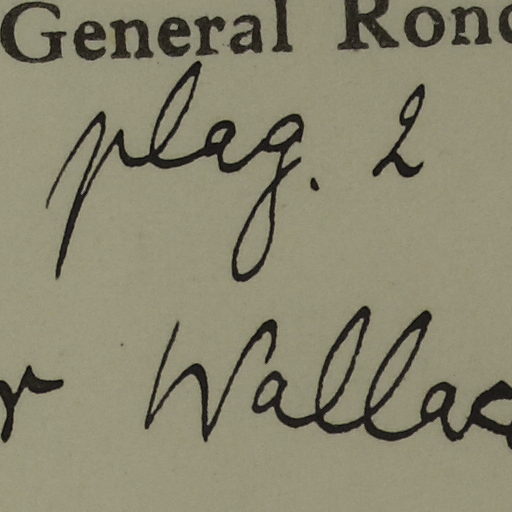 General Rond
plag. 2
r Wallac